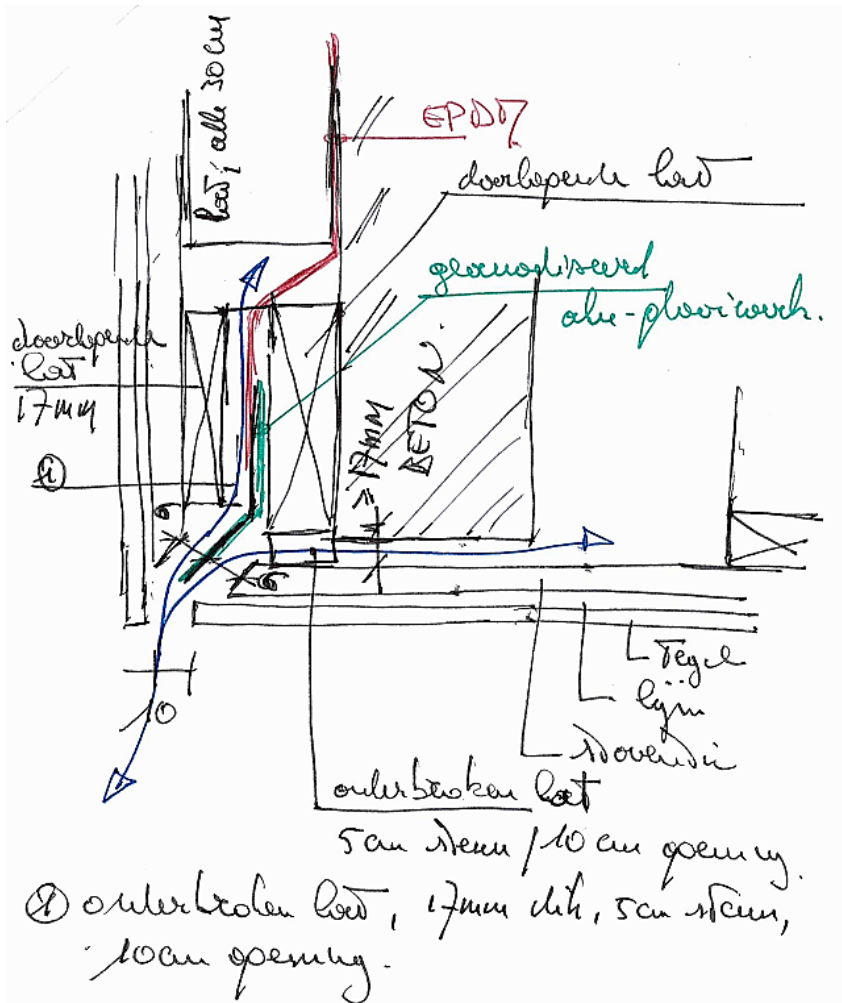 lat, alle 30 cm
EPDM
doorlopende lat
geanodiseerd
alu-plooiwerk.
doorlopende
lat
17mm
①
≥ 17mm
BETON.
6
6
10
Tegel
lijm
stoventec
onderbroken lat
5 cm steun / 10 cm opening.
① onderbroken lat, 17mm dik, 5 cm steun,
10 cm opening.